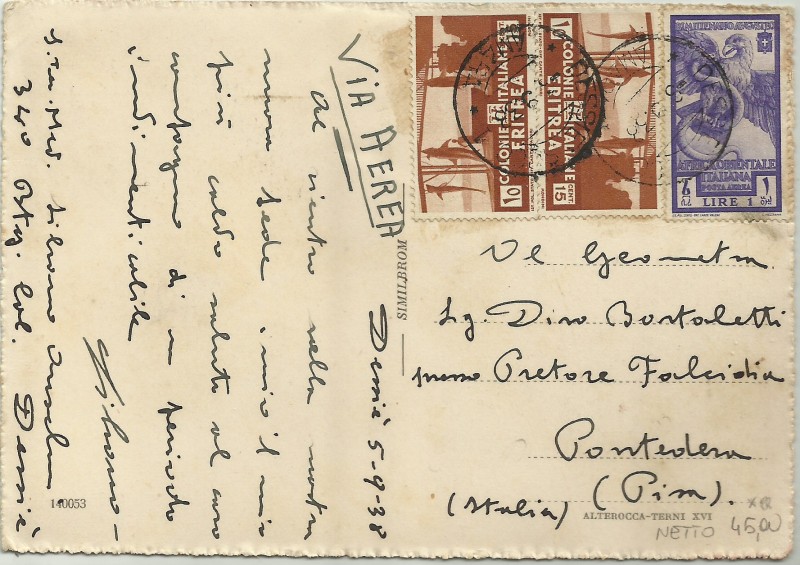 VIA AEREA
Dessiè 5-9-38
Al rientro nella nostra
nuova sede invio il mio
più caldo saluto al caro
compagno di un periodo
indimenticabile
Silvano
S.Ten. Med. Silvano
340 Btg. Col. Dessiè
COLONIE ITALIANE
ERITREA
10
COLONIE ITALIANE
ERITREA
CENT
15
BIMILLENARIO AUGUSTEO
AFRICA ORIENTALE
ITALIANA
POSTA AEREA
LIRE 1
Al Geometra
Sig. Dino Bortoletti
presso Pretore Falcidia
Pontedera
(Pisa).
(Italia)
SIMILBROM
140053
ALTEROCCA-TERNI XVI
NETTO 45,00